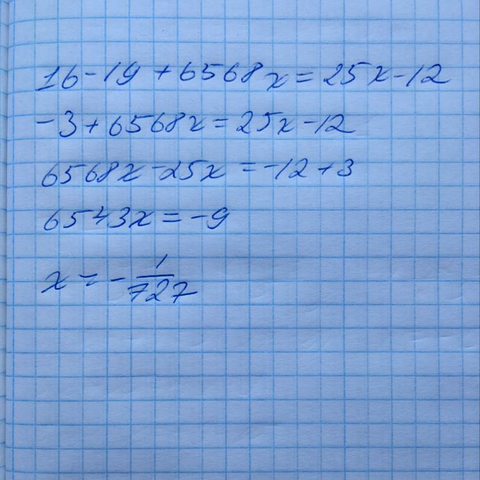 16-19+6568x=25x-12
-3+6568x=25x-12
6568x-25x=-12+3
6543x=-9
x=-1/727